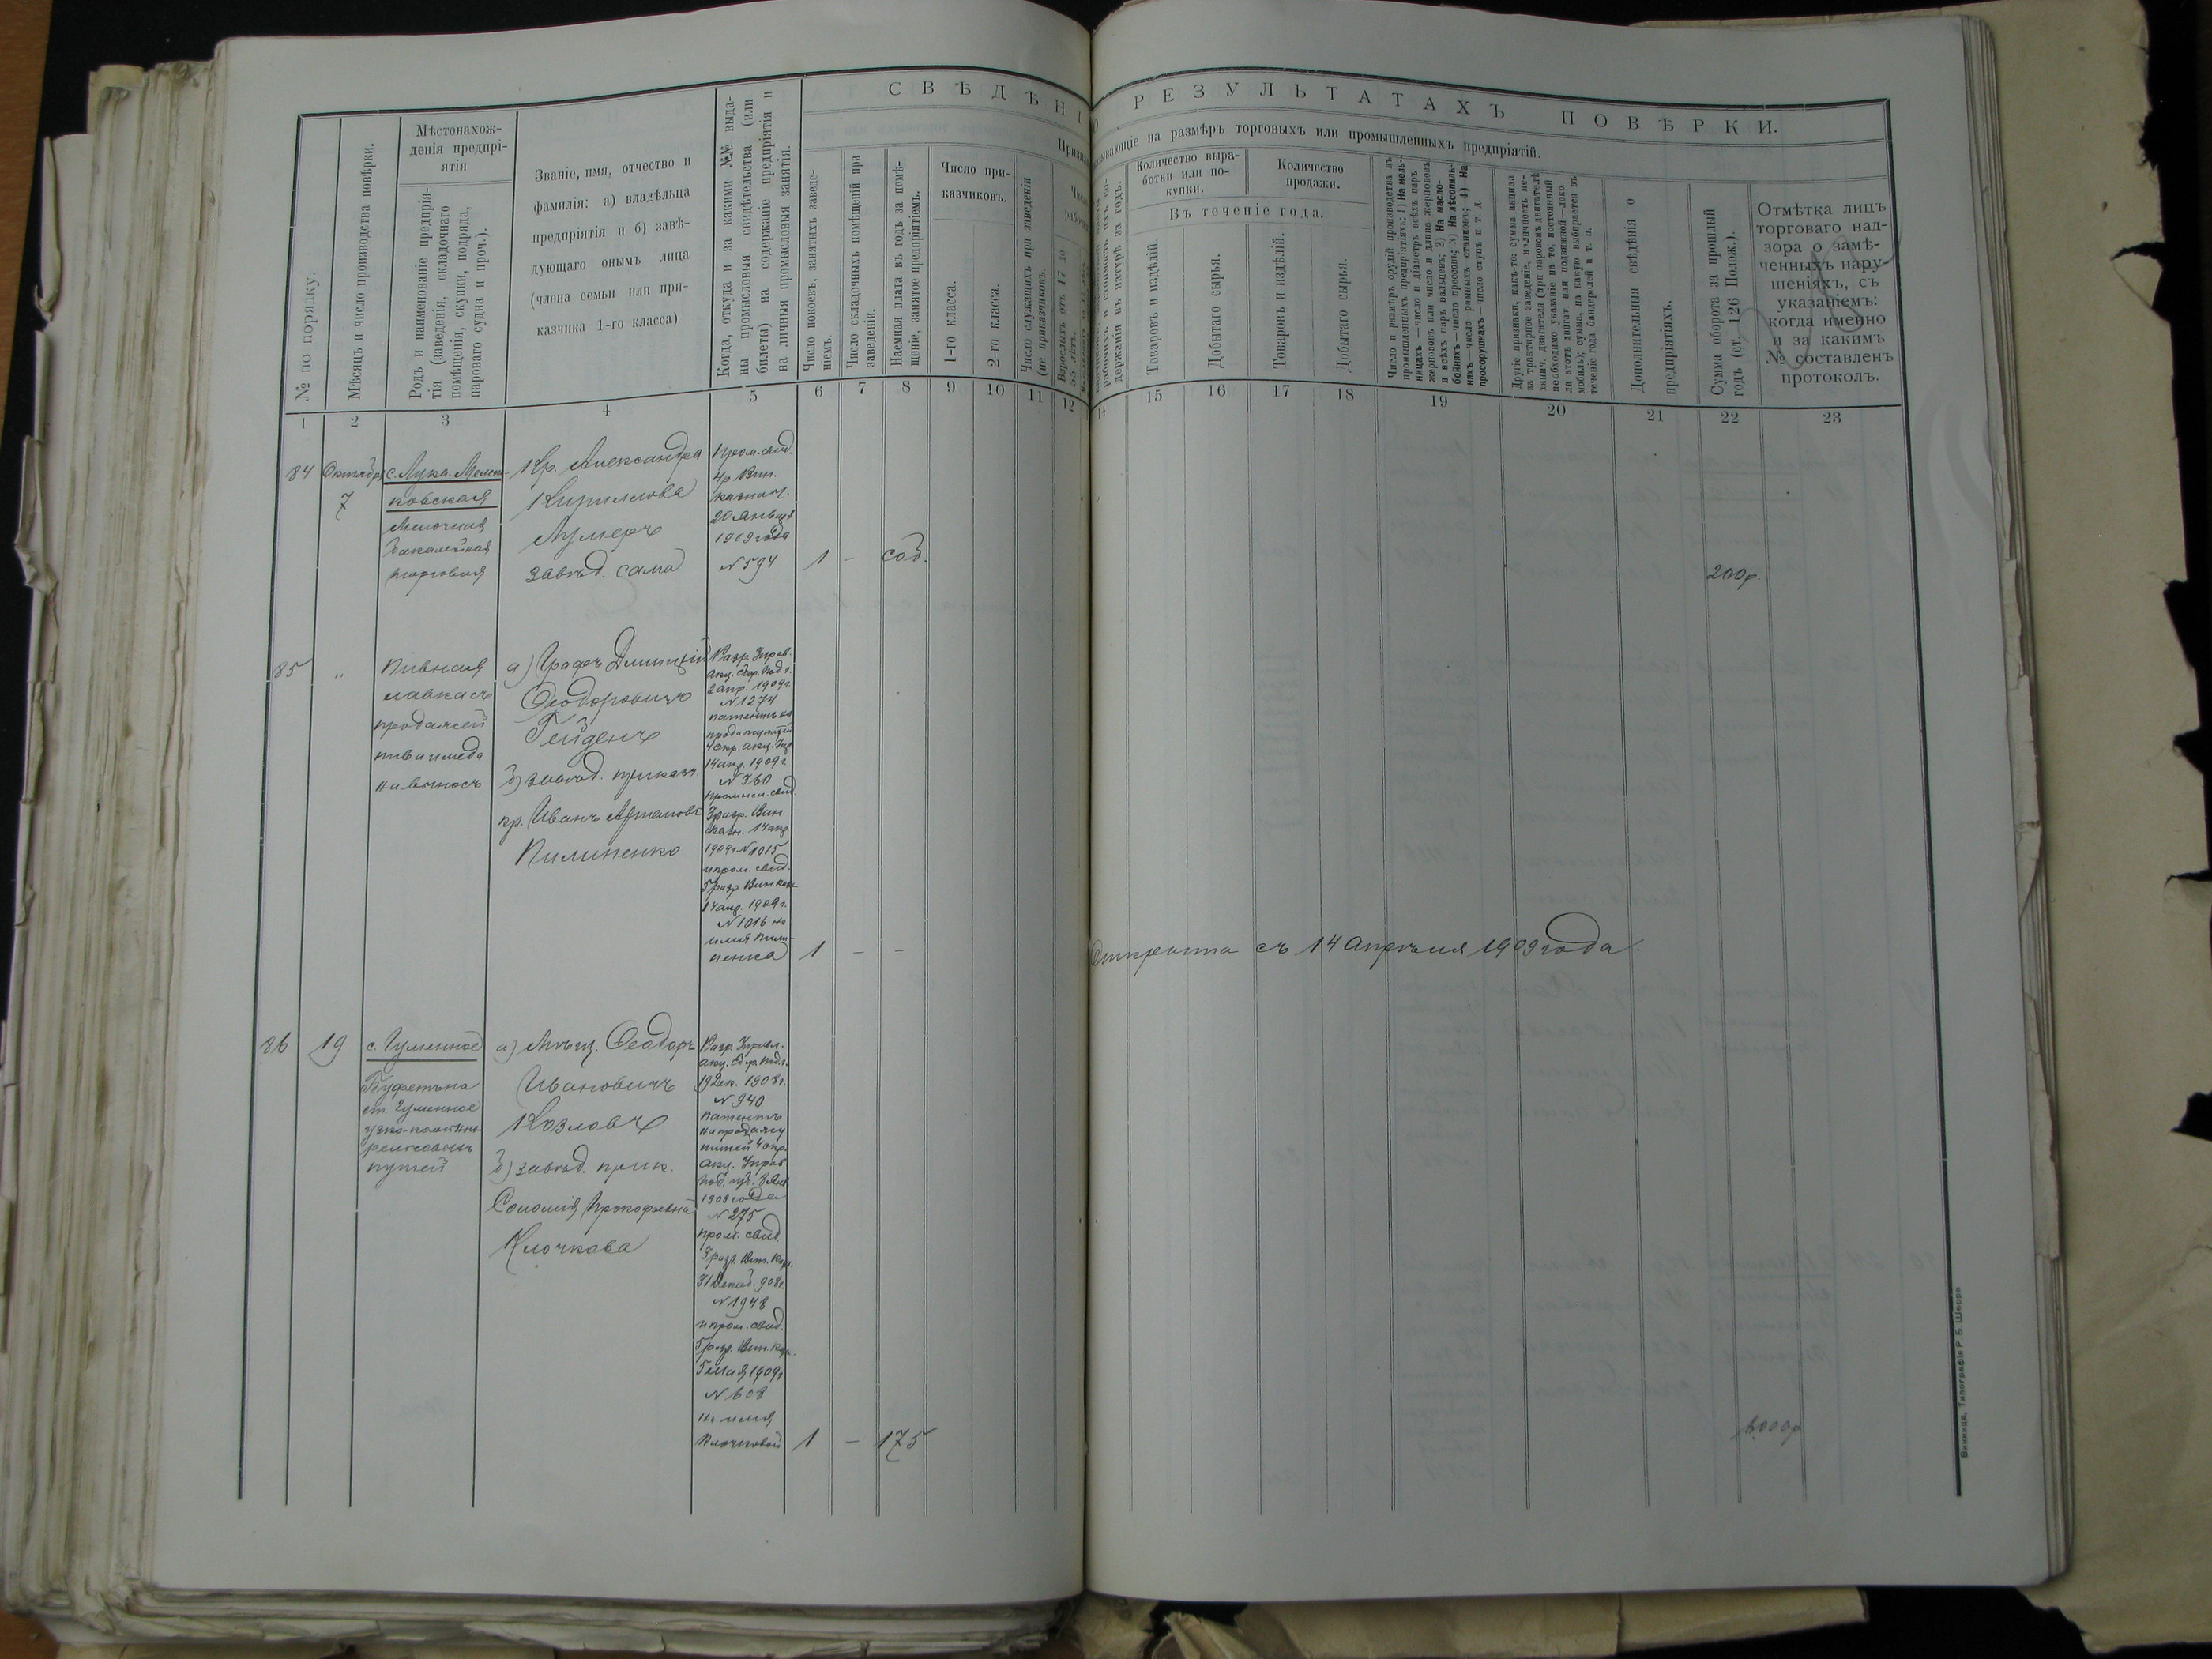 СВѢДѢНІ
О РЕЗУЛЬТАТАХЪ ПОВѢРКИ.
указывающіе на размѣръ торговыхъ или промышленныхъ предпріятій.
№ по порядку.
Мѣсяцъ и число производства повѣрки.
Мѣстонахож-
денія предпрі-
ятія
Родъ и наименованіе предпрія-
тія (заведенія, складочнаго
помѣщенія, скупки, подряда,
пароваго судна и проч.).
Званіе, имя, отчество и
фамилія: а) владѣльца
предпріятія и б) завѣ-
дующаго онымъ лица
(члена семьи или при-
казчика 1-го класса).
Когда, откуда и за какими №№ выда-
ны промысловыя свидѣтельства (или
билеты) на содержаніе предпріятія и
на личныя промысловыя занятія.
Число покоевъ, занятыхъ заведе-
ніемъ.
Число складочныхъ помѣщеній при
заведеніи.
Наемная плата въ годъ за помѣ-
щеніе, занятое предпріятіемъ.
Число при-
казчиковъ.
1-го класса.
2-го класса.
Число служащихъ при заведеніи
(не приказчиковъ).
Взрослыхъ отъ 17 до
55 лѣтъ.
Количество выра-
ботки или по-
купки.
Количество
продажи.
Въ теченіе года.
Товаровъ и издѣлій.
Добытаго сырья.
Товаровъ и издѣлій.
Добытаго сырья.
Число и размѣръ орудій производства въ
промышленныхъ предпріятіяхъ: 1) На мель-
ницахъ—число и діаметръ всѣхъ паръ
жернововъ или число и длина жернововъ
и всѣхъ паръ вальцевъ; 2) На масло-
бойняхъ—число прессовъ; 3) На лѣсопиль-
няхъ—число рамныхъ станковъ; 4) На
просорушкахъ—число ступъ и т. д.
Другіе признаки, какъ-то: сумма акциза
за трактирное заведеніе, наличность ме-
ханич. двигателя (при паровомъ двигателѣ
необходимо указаніе на то, постоянный
ли этотъ двигат. или подвижной—локо
мобиль); сумма, на какую выбирается въ
теченіе года бандеролей и т. п.
Дополнительныя свѣдѣнія о
предпріятіяхъ.
Сумма оборота за прошлый
годъ (ст. 126 Полож.).
Отмѣтка лицъ
торговаго над-
зора о замѣ-
ченныхъ нару-
шеніяхъ, съ
указаніемъ:
когда именно
и за какимъ
№ составленъ
протоколъ.
1 2 3 4 5 6 7 8 9 10 11 12 14 15 16 17 18 19 20 21 22 23
84 Октября
7
с. Лука-Мелеш-
ковская
Мелочная
бакалейная
торговля
Кр. Александра
Кириллова
завѣд. сама
Пром. свид.
4 р. Вин.
казнач.
20 Января
1909 года
№ 594
1 – соб.
200 р.
85 „
Пивная
лавка съ
продажей
пива и меда
на выносъ
а) Графъ Дмитрій
Ѳеодоровичъ
Гейденъ
б) завѣд. приказч.
кр. Иванъ Артемовъ
Пилипенко
Разр. Управ.
акц. сбор. Под. г.
2 апр. 1909 г.
№ 1274
патентъ на
4 окр. акц. Упр
14 апр. 1909 г
№ 360
Промысл. свид
3 разр. Вин.
казн. 14 апр.
1909 г № 1015
и пром. свид.
5 разр. Вин. казн
14 апр. 1909 г.
№ 1016 на
имя Пили-
пенка
1 – –
Открыта съ 14 Апрѣля 1909 года.
86 19
с. Гуменное
Буфетъ на
ст. Гуменное
рельсовыхъ
путей
а) Мѣщ. Ѳеодоръ
Ивановичъ
Козловъ
б) завѣд. прик.
Соломія Прокофьевна
Клочкова
Разр. Управл.
акц. сб. р. Под. г.
19 Дек. 1908 г.
№ 940
патентъ
на продажу
питей 4 окр.
акц. Управ
Под. губ. 8 Янв.
1909 года
№ 275
пром. свид.
3 разр. Вин. Каз.
31 Декаб. 908 г.
№ 1948
и пром. свид.
5 разр. Вин. Каз.
5 Мая 1909 г
№ 608
на имя
Клочковой
1 – 175
Винница, Типографія Р. Б. Шерра